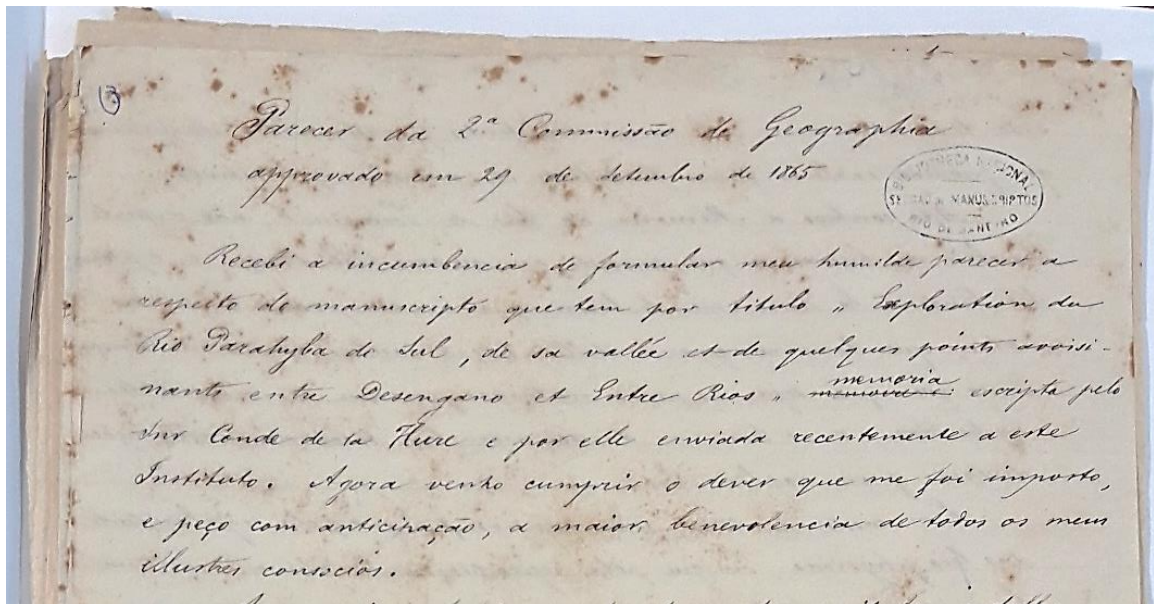 Parecer da 2ª Commissão de Geographia
approvado em 29 de setembro de 1865
BIBLIOTHECA NACIONAL
SECÇÃO MANUSCRIPTOS
RIO DE JANEIRO
Recebi a incumbencia de formular meu humilde parecer a
respeito do manuscripto que tem por titulo „ Exploration du
Rio Parahyba do Sul, de sa vallée et de quelques points avoisi-
nants entre Desengano et Entre Rios „ memoria escripta pelo
Snr Conde de la Hure e por elle enviada recentemente a este
Instituto. Agora venho cumprir o dever que me foi imposto,
e peço com anticipação, a maior benevolencia de todos os meus
illustres consocios.